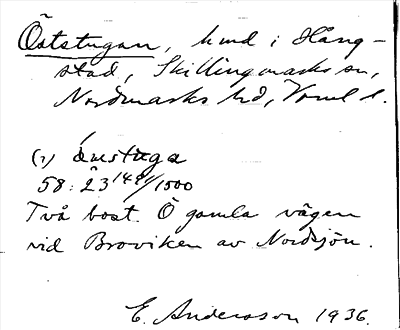 Öststugan, hmd i Hång-
stad, Skillingmarks sn,
Nordmarks hd, Vrml l.
(1) åustuga
58: 23 149/1500
Två bost. Ö gamla vägen
vid Broviken av Nordsjön.
E. Andersson 1936.